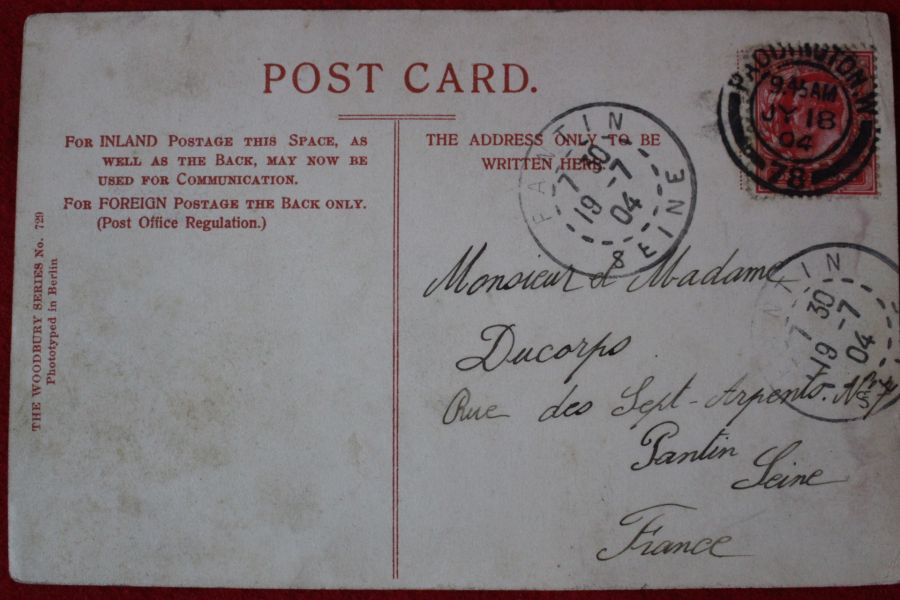 POST CARD.
FOR INLAND POSTAGE THIS SPACE, AS
WELL AS THE BACK, MAY NOW BE
USED FOR COMMUNICATION.
FOR FOREIGN POSTAGE THE BACK ONLY.
(Post Office Regulation.)
THE WOODBURY SERIES No. 729
Phototyped in Berlin
THE ADDRESS ONLY TO BE
WRITTEN HERE.
PADDINGTON.W.
9.45AM
JY 18
04
78
PANTIN
7 30
19 -7
04
SEINE
Monsieur et Madame
Ducorps
Rue des Sept-Arpents. No 7
Pantin
Seine
France
NTIN
7 30
19 -7
04